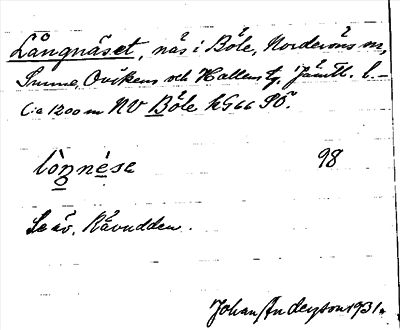 Långnäset, näs i Böle, Norderöns sn,
Sunne, Ovikens och Hallens tg, Jämtl. l.
C:a 1200 m NV Böle hG66 SÖ.
lòŋnèse 98
Se äv. Råvudden.
Johan Anderson 1931.